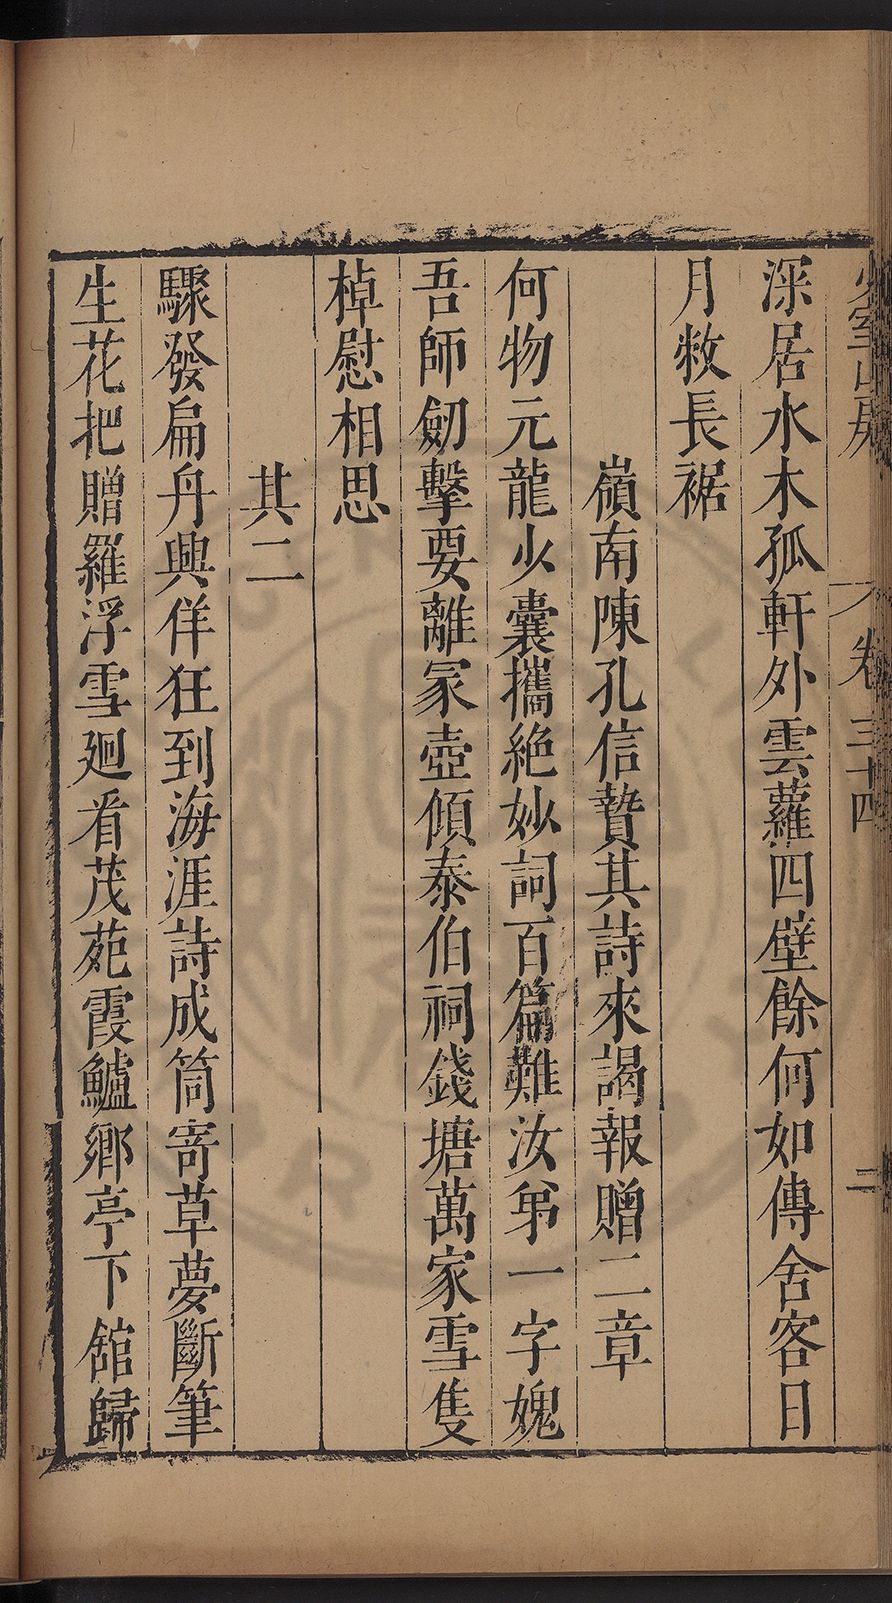 少室山房
卷三十四
二
深居水木孤軒外雲蘿四壁餘何如傳舍客日
月敝長裾
嶺南陳孔信贄其詩來謁報贈二章
何物元龍少囊攜絶妙詞百篇難汝弟一字媿
吾師劒擊要離冢壺傾泰伯祠錢塘萬家雪隻
棹慰相思
其二
驟發扁舟興佯狂到海涯詩成筒寄草夢斷筆
生花把贈羅浮雪廻看茂苑霞鱸鄉亭下舘歸